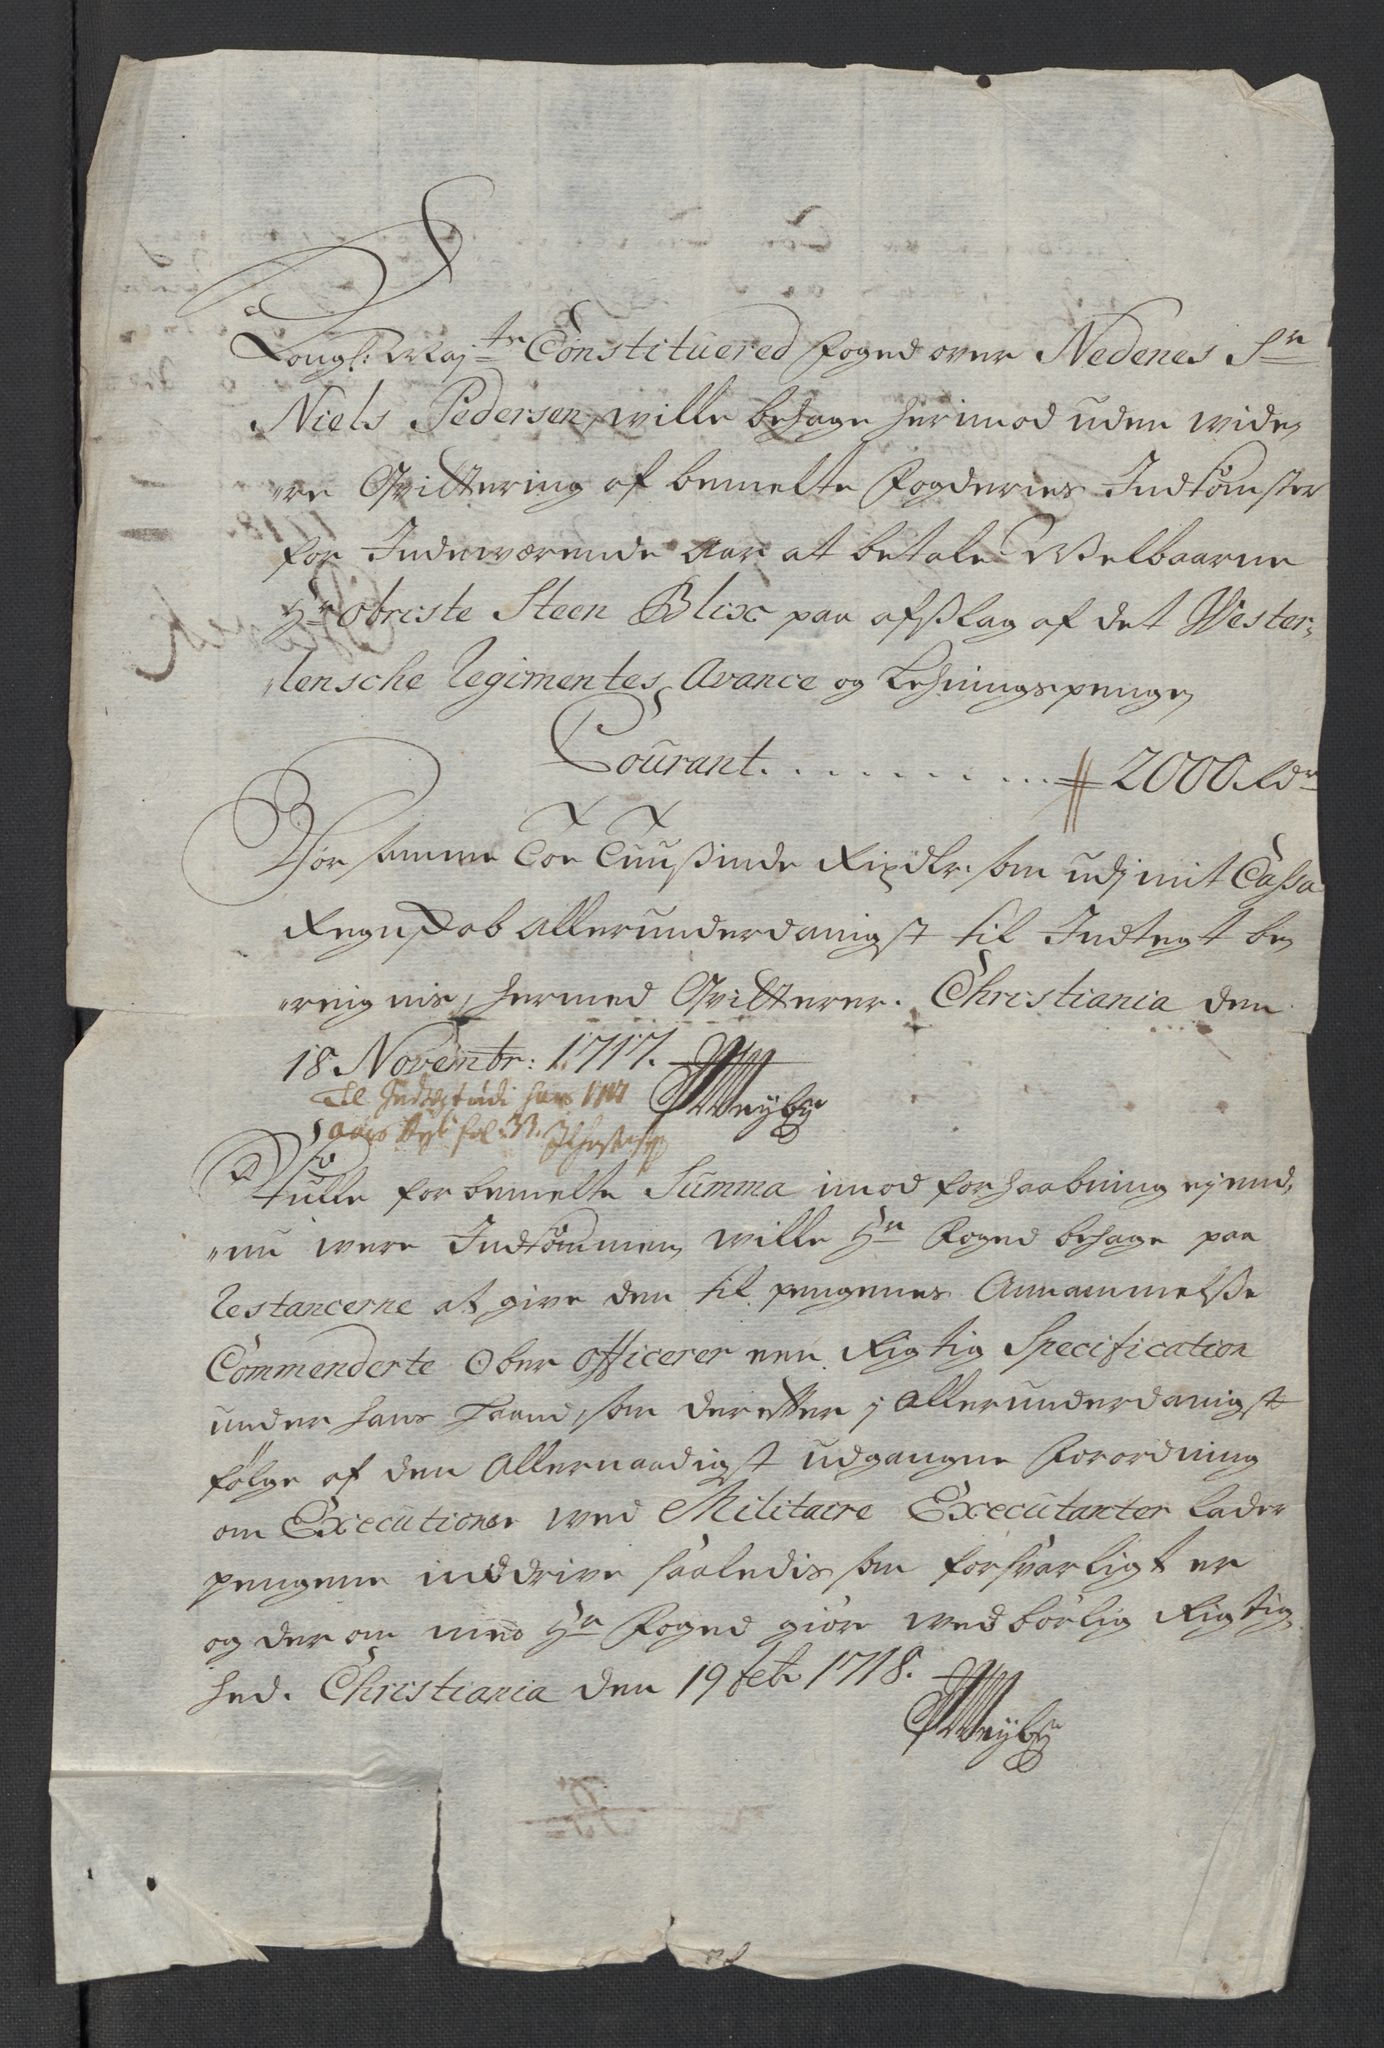 Kongl: Maj:ter Constituered foged over Nedenes Sr
Niels Pedersen, wille behage herimod uden wide,
"re Qvittering af bemelte Fogderies Indkomster
for Indeværende Aar at betale Welbaarne
Hr Obriste Steen Blix paa afslag af det Wester,,
"lensche Regimentes Avance og Lehningspenge,
Courant . . . . . . . . . . 2000 Rdr
For samme Toe Tuusinde Rixdlr: som udj mit Cassa
Regnskab allerunderdanigst til Indtegt be,
"reignis, hermed Qvitterer. Christiania den
18 Novembr: 1717. Weyby
Til Indtegt udi 1717
Aars fol: 37.
Skulle forbemelte Summa imod forhaabning ej end,
"nu were Indkommen, wille Hr Foged behage paa
Restancerne at give den til pengenes Annammelsse
Commenderte Ober Officerer een Rigtig Specification
under hans Haand, som derefter j allerunderdanigst
følge af den Allernaadigst udgangne Forordning
om Executioner wed Militaire Executanter lader
pengene inddrive saaledis som forsvarligt er
og der om med Hr Foged giøre wedbørlig Rigtig,
hed. Christiania den 19 feb 1718.
Weyby